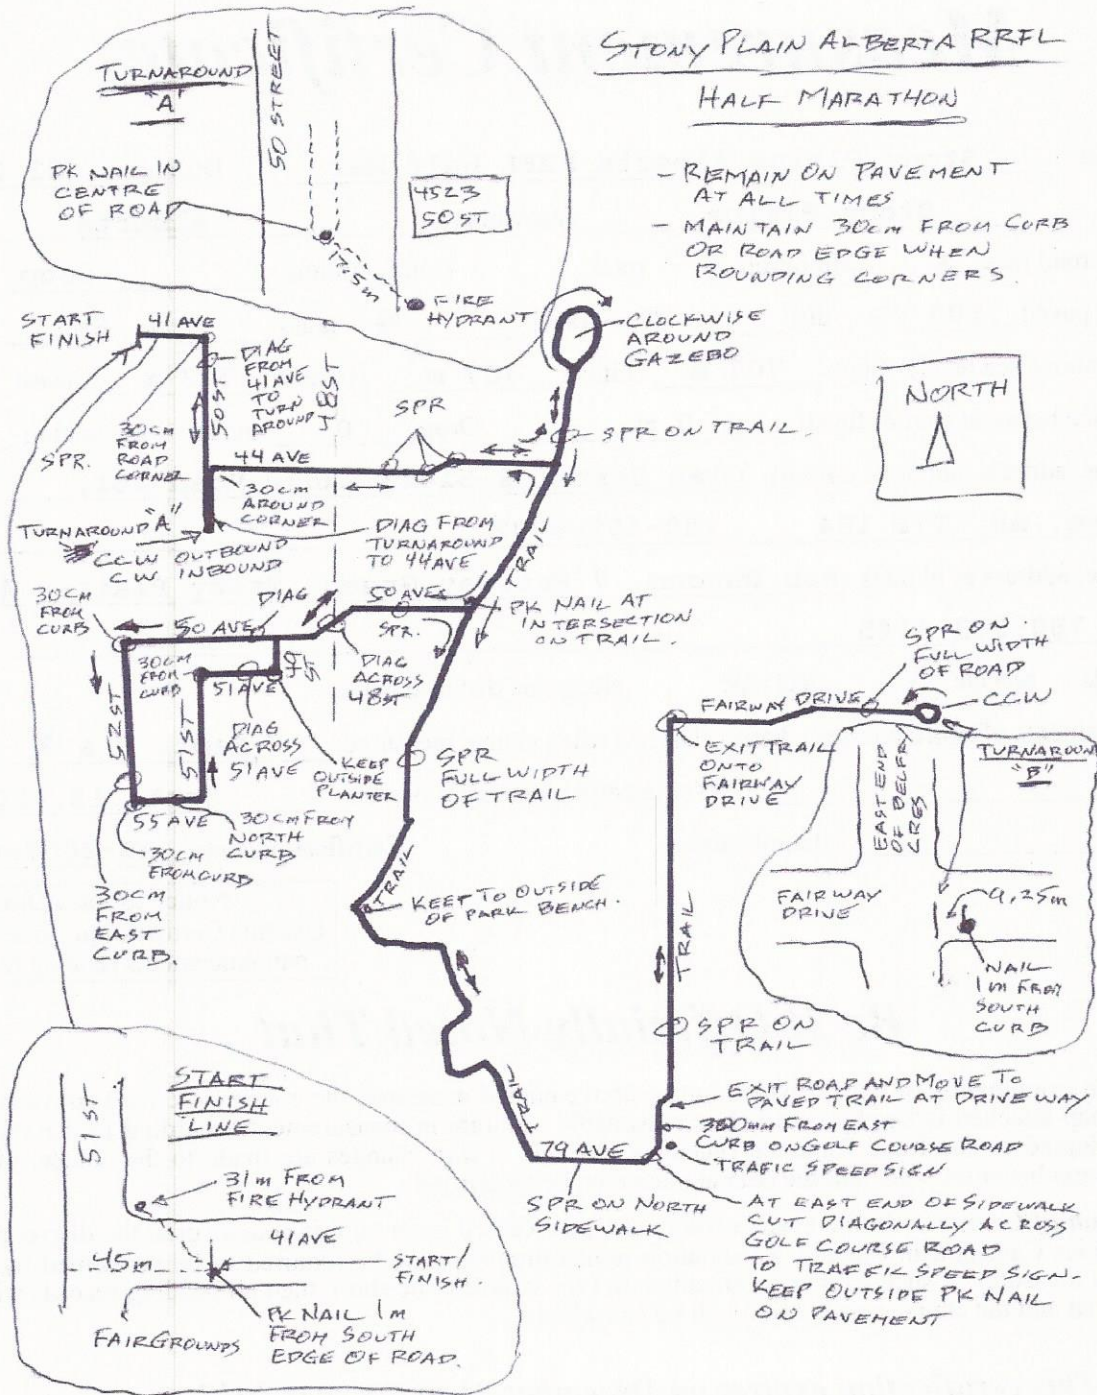 STONY PLAIN ALBERTA RRFL
HALF MARATHON
- REMAIN ON PAVEMENT
AT ALL TIMES
- MAINTAIN 30cm FROM CURB
OR ROAD EDGE WHEN
ROUNDING CORNERS.
TURNAROUND
"A"
50 STREET
PK NAIL IN
CENTRE
OF ROAD
4523
50 ST
17.5m
FIRE
HYDRANT
START
FINISH
41 AVE
DIAG
FROM
41 AVE
TO
TURN
AROUND
50 ST
48 ST
30cm
FROM
ROAD
CORNER
SPR.
SPR
CLOCKWISE
AROUND
GAZEBO
SPR ON TRAIL.
NORTH
44 AVE
30cm
AROUND
CORNER
TURNAROUND "A"
CCW OUTBOUND
CW INBOUND
DIAG FROM
TURNAROUND
TO 44 AVE
TRAIL
30cm
FROM
CURB
50 AVE
DIAG
50 AVE
SPR.
PK NAIL AT
INTERSECTION
ON TRAIL.
DIAG
ACROSS
48 ST
30cm
FROM
CURB
51 AVE
50
ST
52 ST
51 ST
DIAG
ACROSS
51 AVE
KEEP
OUTSIDE
PLANTER
SPR
FULL WIDTH
OF TRAIL
55 AVE
30cm FROM
NORTH
CURB
30cm
FROM CURB
30CM
FROM
EAST
CURB.
TRAIL
KEET TO OUTSIDE
OF PARK BENCH.
SPR ON.
FULL WIDTH
OF ROAD
FAIRWAY DRIVE
CCW
EXIT TRAIL
ONTO
FAIRWAY
DRIVE
TURNAROUND
"B"
EAST END
OF BELFRY
CRES
FAIRWAY
DRIVE
9.25m
NAIL
1m FROM
SOUTH
CURB
TRAIL
SPR ON
TRAIL
EXIT ROAD AND MOVE TO
PAVED TRAIL AT DRIVEWAY
300mm FROM EAST
CURB ON GOLF COURSE ROAD
TRAFIC SPEED SIGN
TRAIL
79 AVE
SPR ON NORTH
SIDEWALK
AT EAST END OF SIDEWALK
CUT DIAGONALLY ACROSS
GOLF COURSE ROAD
TO TRAFFIC SPEED SIGN.
KEEP OUTSIDE PK NAIL
ON PAVEMENT
START
FINISH
LINE
51 ST
31m FROM
FIRE HYDRANT
41 AVE
45m
START/
FINISH.
PK NAIL 1m
FROM SOUTH
EDGE OF ROAD.
FAIRGROUNDS